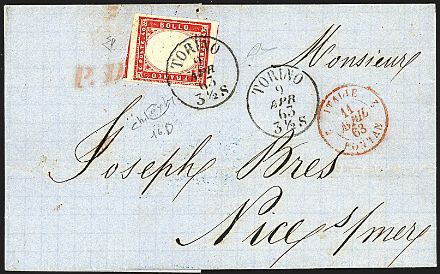 BOLLO
TORINO
9
APR
63
3½ S
P. D.
Monsieur
TORINO
9
APR
63
3½ S
ITALIE
11
AVRIL
63
16D
Joseph Bres
Nice s/mer